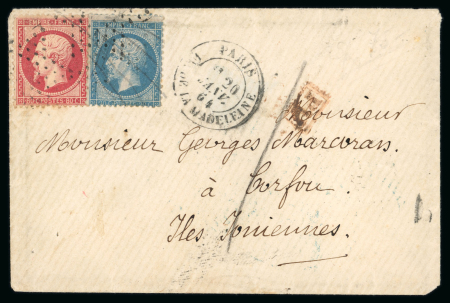 EMPIRE FRANC
PARIS
20
JANV.
64
DE LA MADELEINE
Monsieur
Monsieur Georges Marcoran.
à Corfou.
Iles Ioniennes.